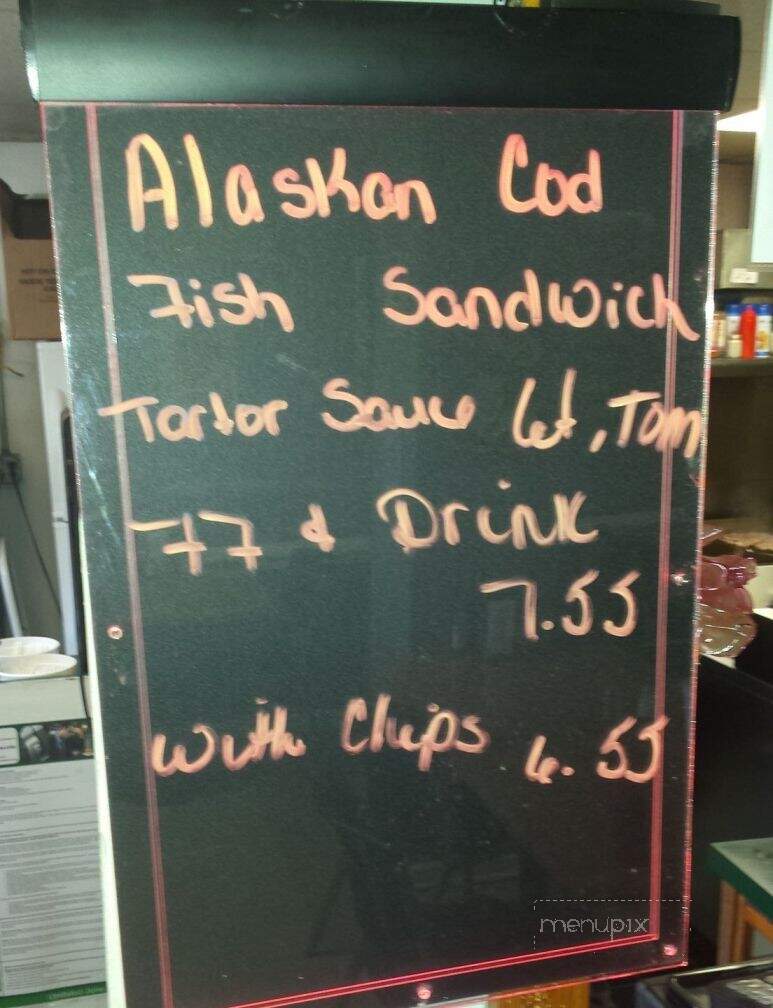 Alaskan Cod
Fish Sandwich
Tartor Sauce Let, Tom
FF & Drink
7.55
with Chips 6.55
menupix